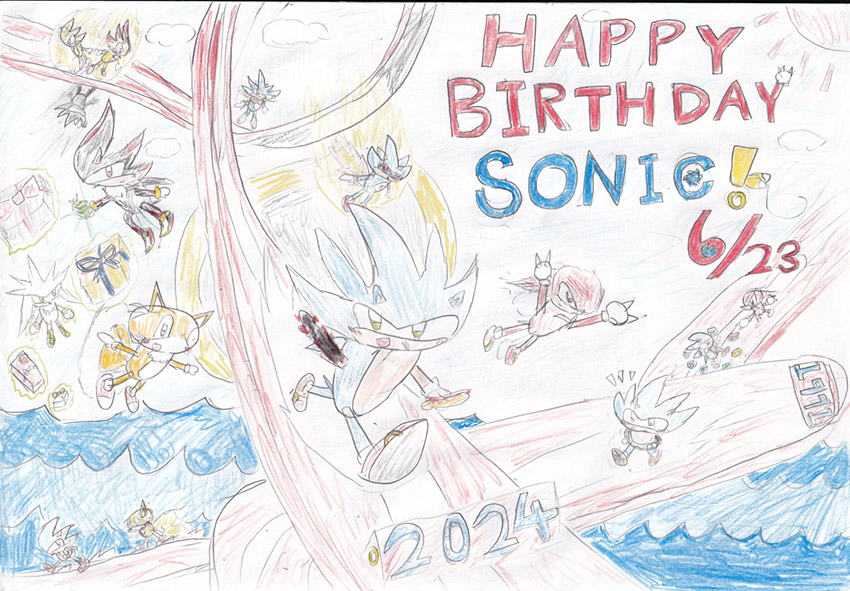 HAPPY
BIRTHDAY
SONIC!
6/23
2024